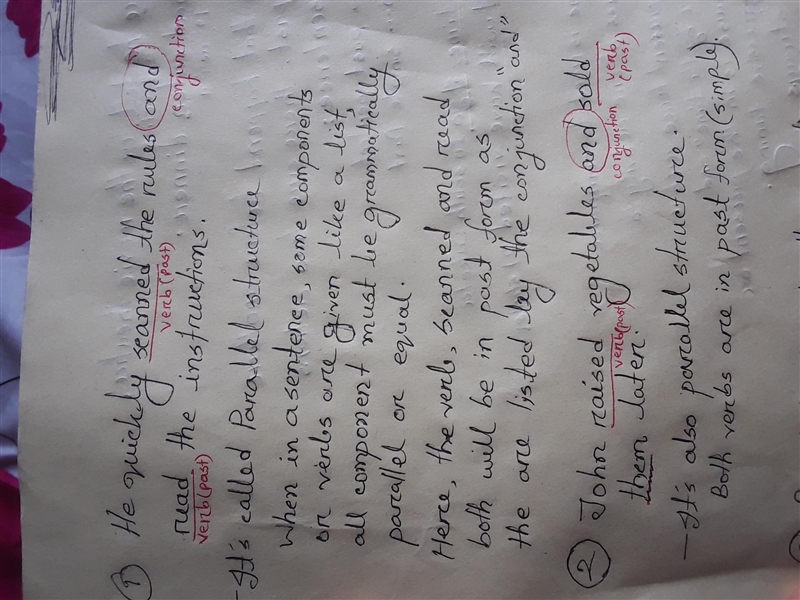 1 He quickly scanned the rules and
verb(past) conjunction
read the instructions.
verb(past)
-It's called Parallel structure
When in a sentence, some components
or verbs are given like a list,
all component must be grammatically
parallel or equal.
Here, the verb, scanned and read
both will be in past form as
the are listed by the conjunction "and"
2 John raised vegetables and sold
verb(past) conjunction verb (past)
them later
-It's also parallel structure.
Both verbs are in past form (simple).